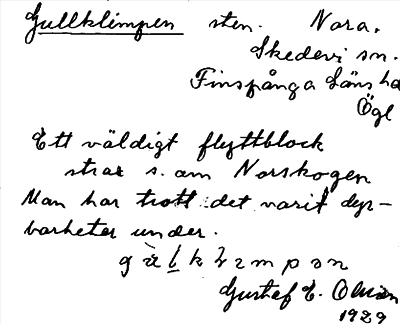 Gullklimpen sten. Nora.
Skedevi sn.
Finspånga läns hd
Ögl
Ett väldigt flyttblock
strax s. om Norskogen
Man har trott det varit dyr-
barheter under.
Gustaf E. Olsson
1929